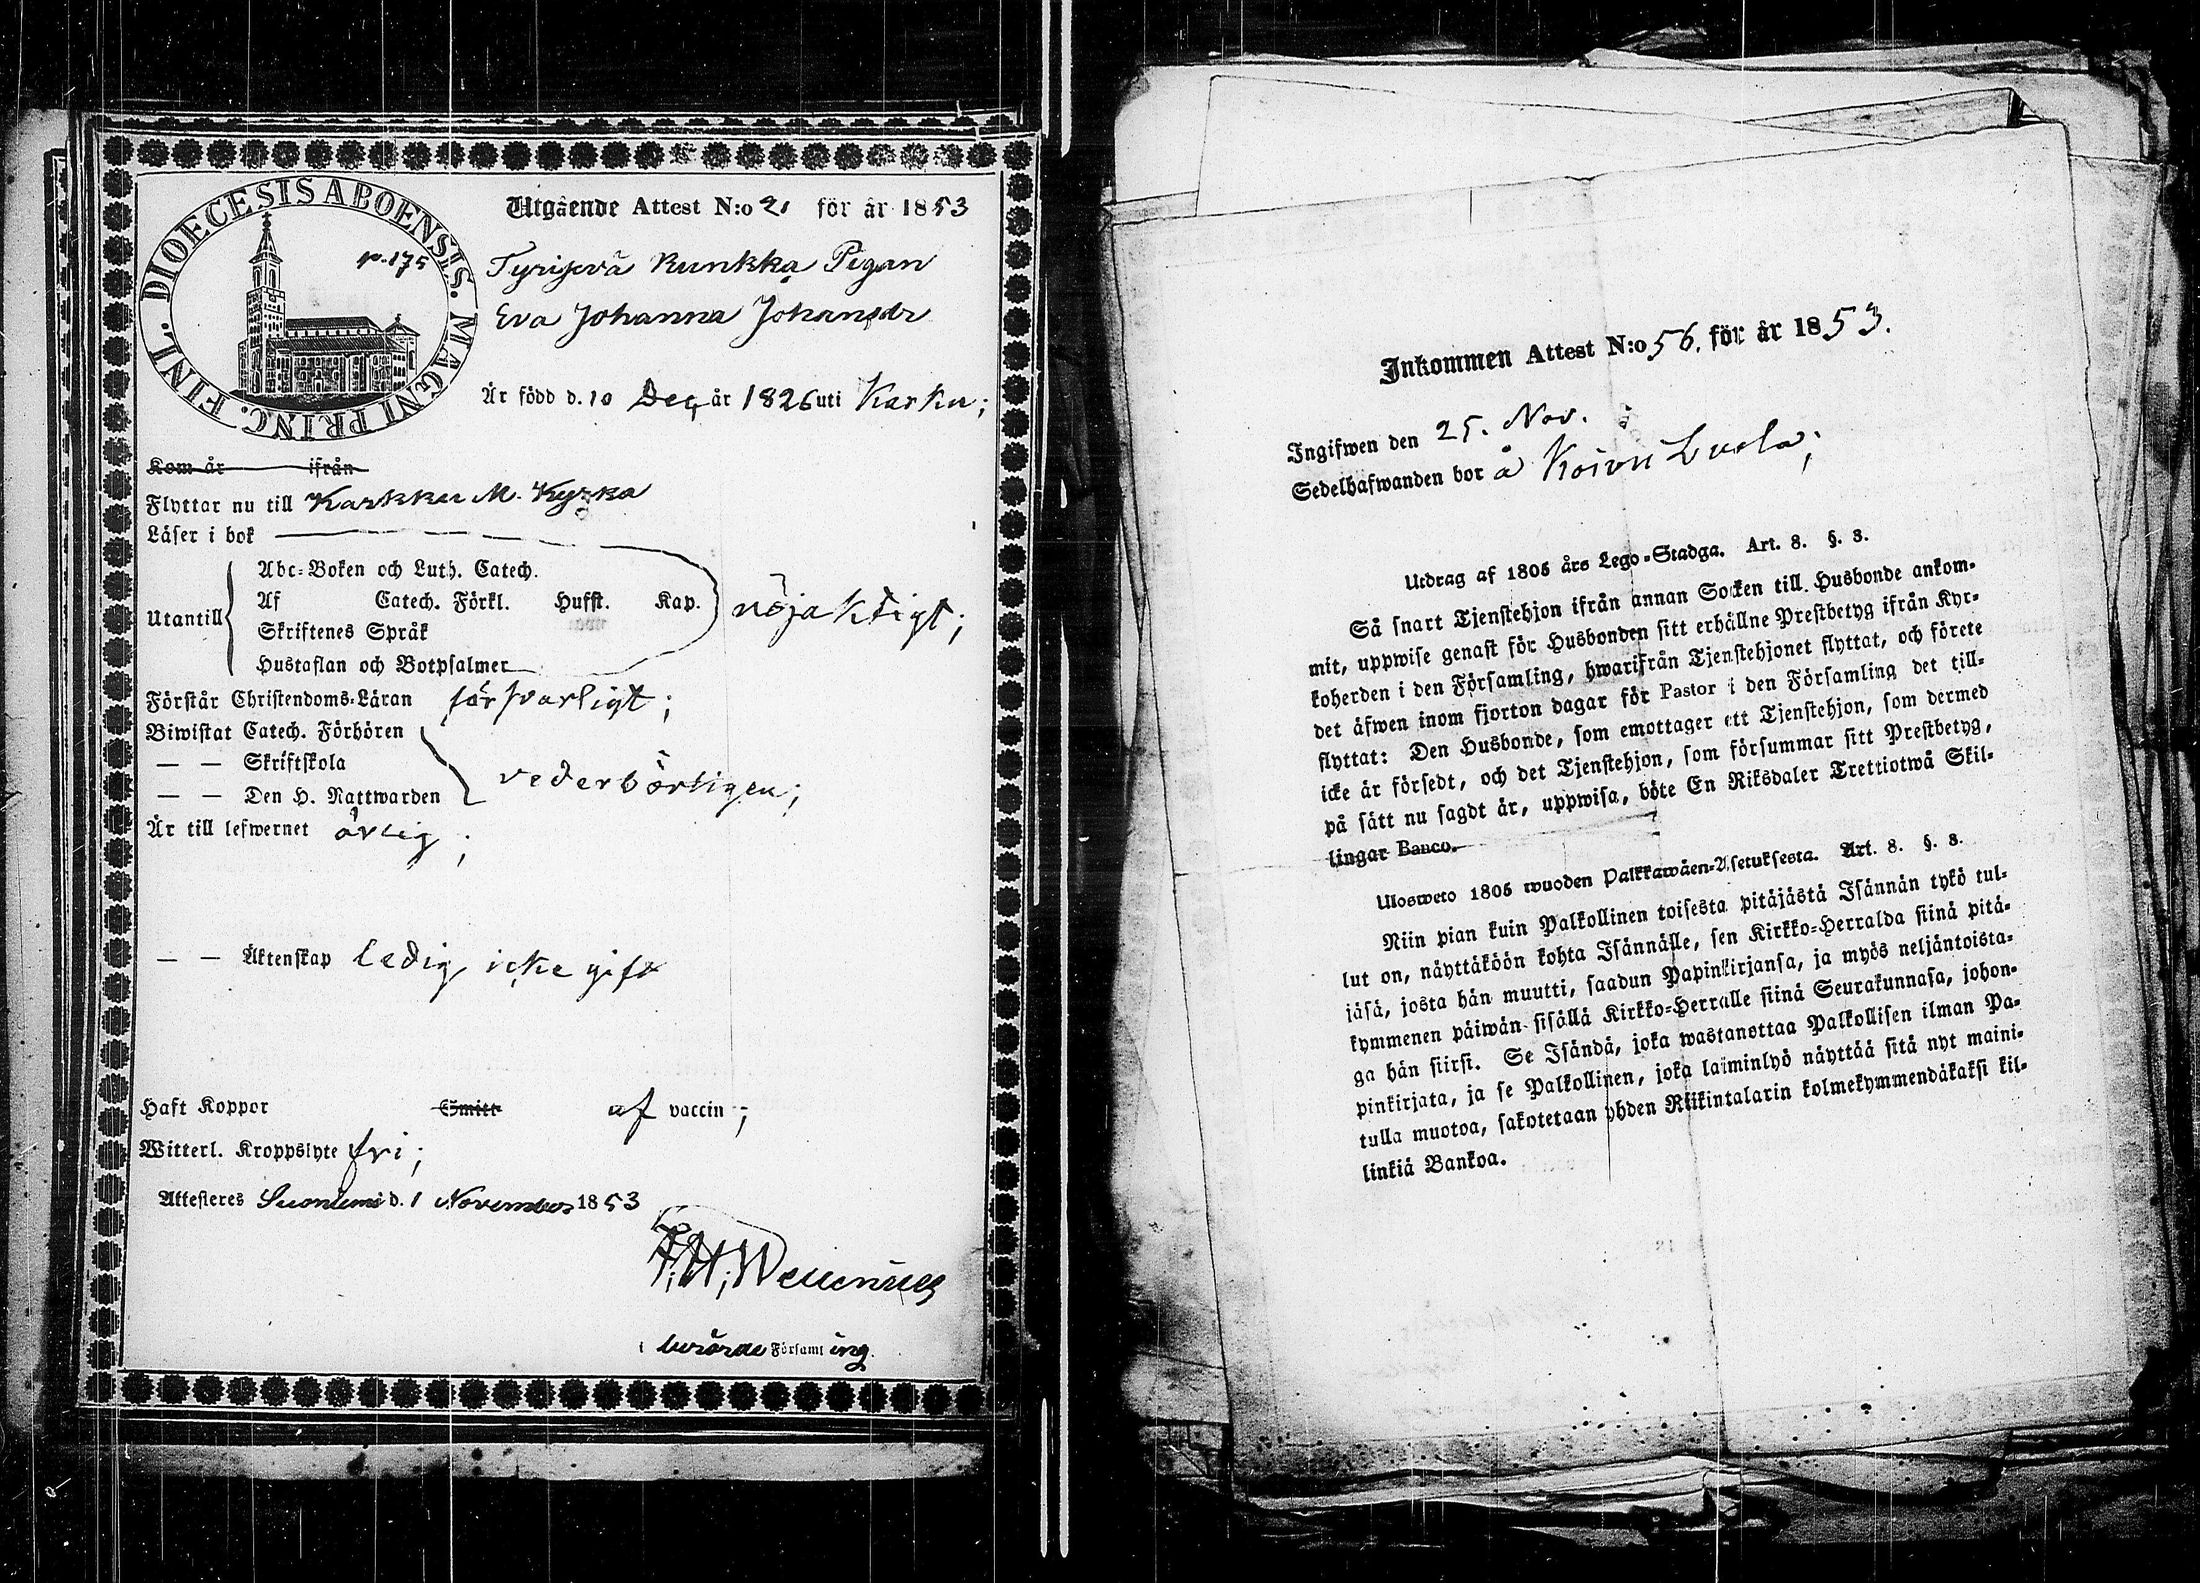 DIOECESIS ABOENSIS. MAGNI PRINC. FINL.
p. 175
Utgående Attest N:o 21 för år 1853
Tyrisevä Kunkka Pigan
Eva Johanna Johansdr
Är född d. 10 Dec, år 1826 uti Karku;
Kom år ifrån
Flyttar nu till Karkku M. Kyrka
Läser i bok
Abc-Boken och Luth. Catech.
Af Catech. Förkl. Hufst. Kap.
Utantill nöjaktigt;
Skriftenes Språk
Hustaflan och Botpsalmer
Förstår Christendoms-Läran försvarligt;
Biwistat Catech. Förhören
— — Skriftskola
vederbörligen;
— — Den H. Nattwarden
Är till lefwernet ärlig;
— — Äktenskap ledig, icke gift
Haft Koppor Smitt af vaccin;
Witterl. Kroppslyte fri;
Attesteres Suoniemi d. 1 November 1853
i berörde Församling.
Inkommen Attest N:o 56. för år 1853.
Ingifwen den 25. Nov.
Sedelhafwanden bor å Koivu Luola;
Utdrag af 1805 års Lego-Stadga. Art. 8. §. 3.
Så snart Tjenstehjon ifrån annan Socken till Husbonde ankom-
mit, uppwise genast för Husbonden sitt erhållne Prestbetyg ifrån Kyr-
koherden i den Församling, hwarifrån Tjenstehjonet flyttat, och förete
det äfwen inom fjorton dagar för Pastor i den Församling det till-
flyttat: Den Husbonde, som emottager ett Tjenstehjon, som dermed
icke är försedt, och det Tjenstehjon, som försummar sitt Prestbetyg,
på sätt nu sagdt är, uppwisa, böte En Riksdaler Trettiotwå Skil-
lingar Banco.
Ulosweto 1805 wuoden Palkkawäen-Asetuksesta. Art. 8. §. 3.
Niin pian kuin Palkollinen toisesta pitäjästä Isännän tykö tul-
lut on, näyttäköön kohta Isännälle, sen Kirkko-Herralda siinä pitä-
jäsä, josta hän muutti, saadun Papinkirjansa, ja myös neljäntoista-
kymmenen päiwän sisällä Kirkko-Herralle siinä Seurakunnasa, johon-
ga hän siirsi. Se Isändä, joka wastanottaa Palkollisen ilman Pa-
pinkirjata, ja se Palkollinen, joka laiminlyö näyttää sitä nyt maini-
tulla muotoa, sakotetaan yhden Riikintalarin kolmekymmendäkaksi kil-
linkiä Bankoa.